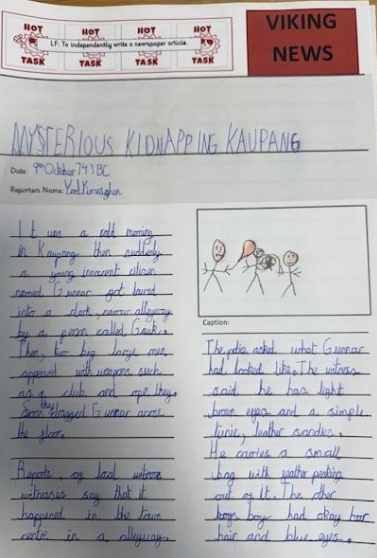 HOT HOT HOT HOT
LF: To independently write a newspaper article.
TASK TASK TASK TASK
VIKING
NEWS
MYSTERIOUS KIDNAPPING KAUPANG
Date: 9th October 793 BC
Reporters Name:
It was a cold morning
in Kaupang then suddenly
a young innocent citizen
named Gunnar got lured
into a dark, narrow alleyway
by a person called
Then, two big large men
appeared with weapons such
as a club and rope they
dragged Gunnar across
the floor.
Reports, of last
witnesses say that it
happened in the town
centre in a alleyway.
Caption:
The police asked what Gunnar
had looked like. The witness
said he has light
brown eyes and a simple
tunic, leather sandles.
He carries a small
bag with leather peaking
out of it. The other
boy had okay
hair and blue eyes.